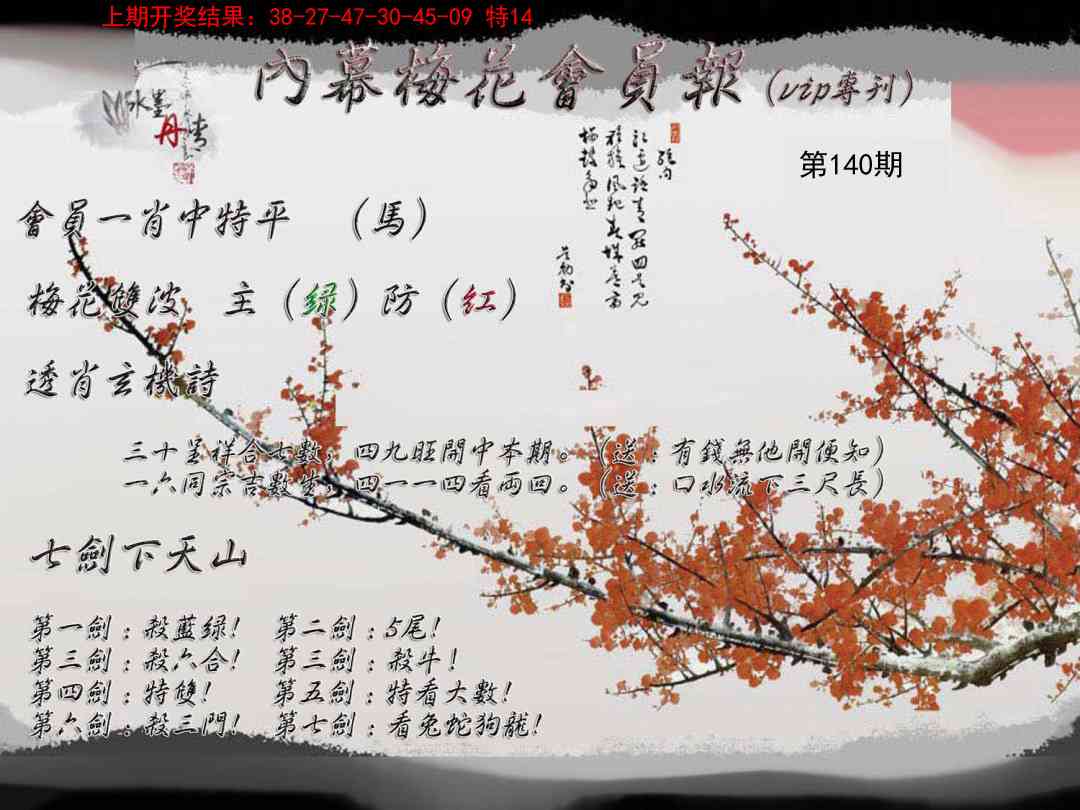 上期开奖结果：38-27-47-30-45-09 特14
內幕梅花會員報(vip專刊)
水墨
丹青
第140期
會員一肖中特平 （馬）
梅花雙波 主（绿）防（红）
透肖玄機詩
三十呈祥合七數，四九旺開中本期。（送：有錢無他開便知）
一六同宗吉數生，四一一四看兩回。（送：口水流下三尺長）
七劍下天山
第一劍：殺藍绿! 第二劍：5尾!
第三劍：殺六合! 第三劍：殺牛!
第四劍：特雙! 第五劍：特看大數!
第六劍：殺三門! 第七劍：看兔蛇狗龍!